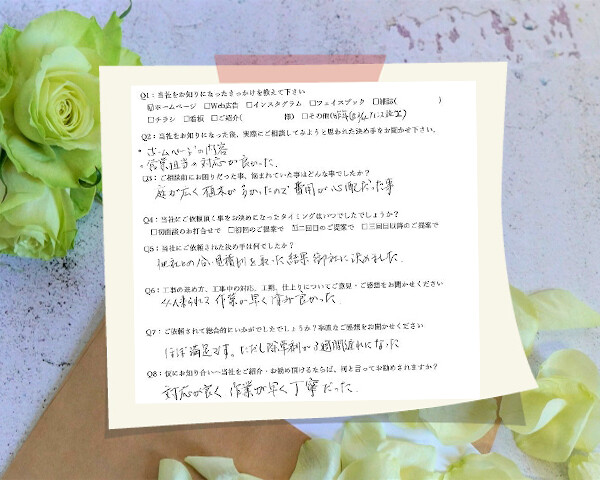 Q1：当社をお知りになったきっかけを教えて下さい
☑ホームページ □Web広告 □インスタグラム □フェイスブック □雑誌( )
□チラシ □看板 □ご紹介( 様) □その他(
Q2：当社をお知りになった後、実際にご相談してみようと思われた決め手をお聞かせ下さい。
・ホームページの内容
・営業担当の対応が良かった。
Q3：ご相談前にお困りだった事、悩まれていた事はどんな事でしたか？
庭が広く植木が多かったので費用が心配だった事
Q4：当社にご依頼頂く事をお決めになったタイミングはいつでしたでしょうか？
□初面談のお打合せで □初回のご提案で ☑二回目のご提案で □三回目以降のご提案で
Q5：当社にご依頼された決め手は何でしたか？
他社との合い見積りを取った結果御社に決めました。
Q6：工事の進め方、工事中の対応、工期、仕上りについてご意見・ご感想をお聞かせください
4人来られて作業が早く済み良かった。
Q7：ご依頼されて総合的にいかがでしたでしょうか？率直なご感想をお聞かせください
ほぼ満足です。ただし除草剤が3週間遅れになった
Q8：仮にお知り合いへ当社をご紹介・お勧め頂けるならば、何と言ってお勧めされますか？
対応が良く作業が早く丁寧だった。